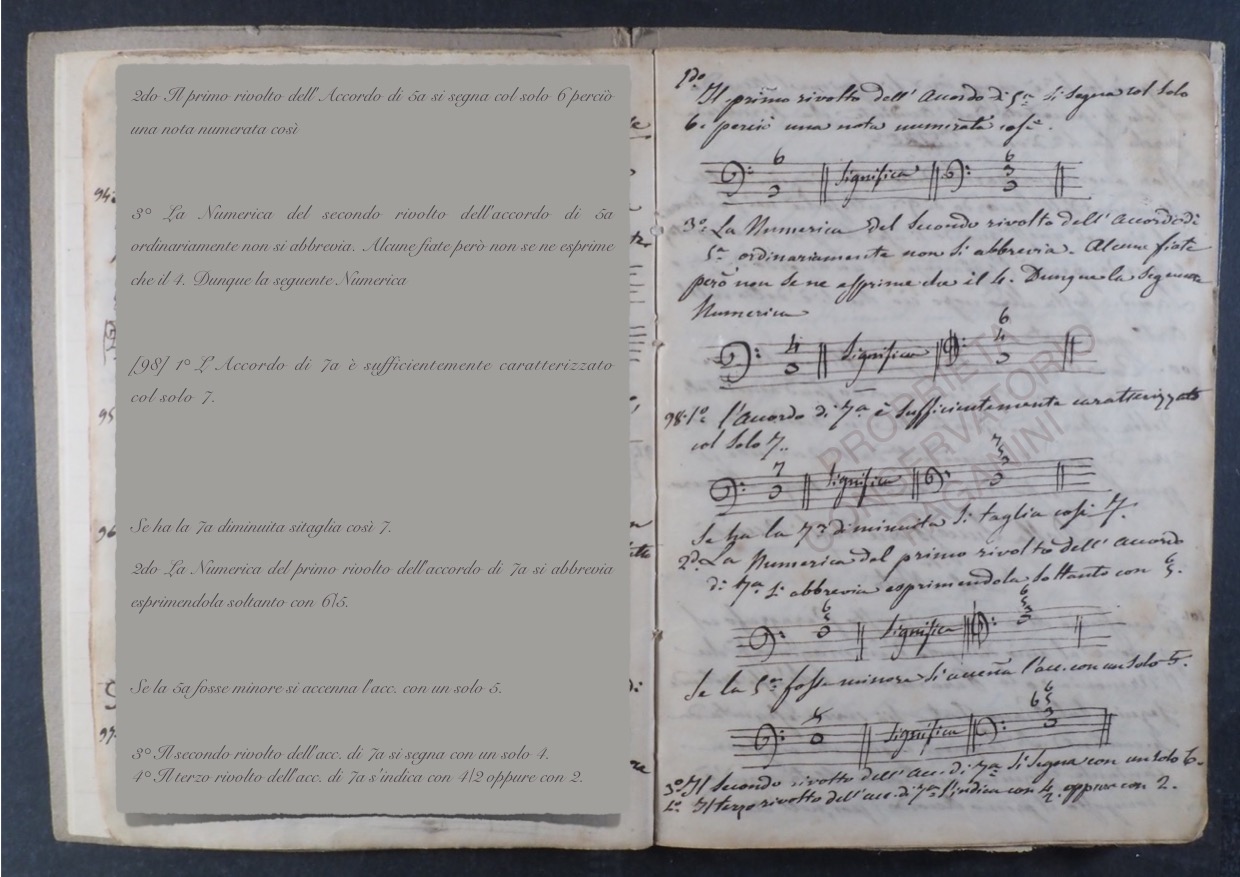 2do Il primo rivolto dell'Accordo di 5a si segna col solo 6 perciò
una nota numerata così
3° La Numerica del secondo rivolto dell'accordo di 5a
ordinariamente non si abbrevia. Alcune fiate però non se ne esprime
che il 4. Dunque la seguente Numerica
[98] 1° L'Accordo di 7a è sufficientemente caratterizzato
col solo 7.
Se ha la 7a diminuita sitaglia così 7.
2do La Numerica del primo rivolto dell'accordo di 7a si abbrevia
esprimendola soltanto con 6\5.
Se la 5a fosse minore si accenna l'acc. con un solo 5.
3° Il secondo rivolto dell'acc. di 7a si segna con un solo 4.
4° Il terzo rivolto dell'acc. di 7a s'indica con 4/2 oppure con 2.
94:
95
96
97
2do
Il primo rivolto dell'Accordo di 5a si segna col solo
6. perciò una nota numerata così.
6 significa 6 3
3° La Numerica del Secondo rivolto dell'Accordo di
5a ordinariamente non si abbrevia. Alcune fiate
però non se ne esprime che il 4. Dunque la seguente
Numerica
4 Significa 6 4
98: 1° l'Accordo di 7a è sufficientemente caratterizzato
col solo 7.
7 Significa 7 5 3
Se ha la 7a diminuita si taglia così 7.
2do La Numerica del primo rivolto dell'accordo
di 7a si abbrevia esprimendola soltanto con 6 5.
6 5 significa 6 5 3
Se la 5a fosse minore si accenna l'acc. con un solo 5.
5 significa 6 6 5 3
3° Il Secondo rivolto dell'acc. di 7a si segna con un solo 6.
4° Il terzo rivolto dell'acc. di 7a s'indica con 4 2 oppure con 2.
PROPRIETA'
CONSERVATORIO
PAGANINI